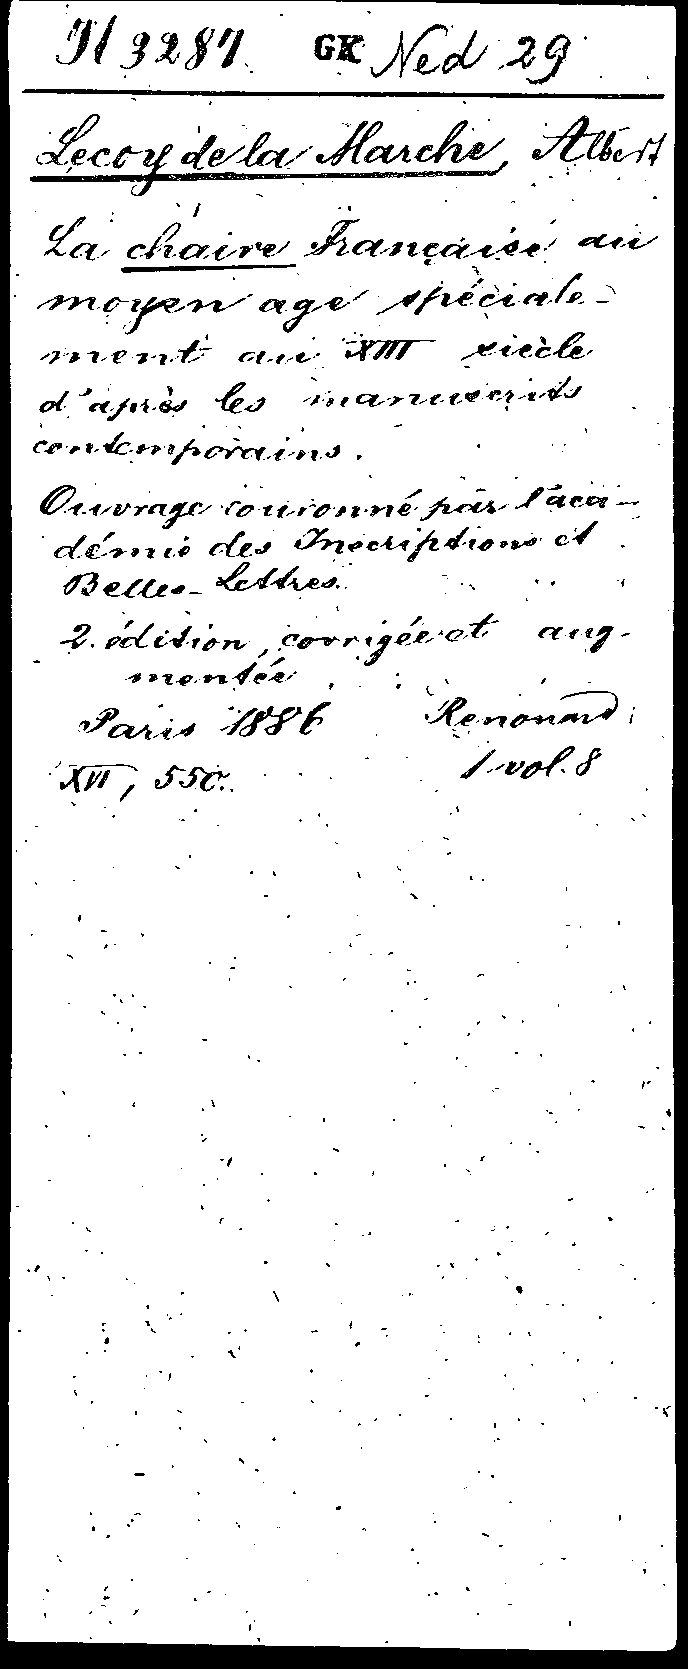 H 3287 GK Ned 29
Lecoy de la Marche, Albert
La chaire Française au
moyen age spéciale-
ment au XIII siècle
d'après les manuscrits
contemporains.
Ouvrage couronné par l'aca-
démie des Inscriptions et
Belles-Lettres.
2. édition, corrigée et aug-
mentée
Paris 1886 Renouard
XVI, 550. 1 vol. 8